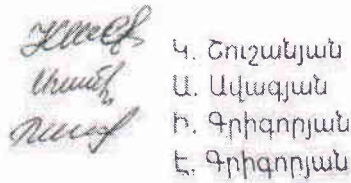 Կ. Շուշանյան
Ա. Ավագյան
Ի. Գրիգորյան
Է. Գրիգորյան